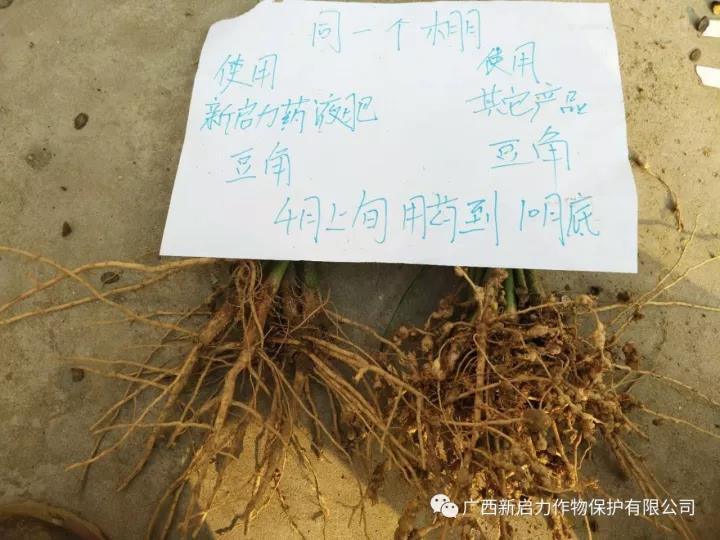 同一个棚
使用
新启力药液肥
豆角
使用
其它产品
豆角
4月上旬用药到10月底
广西新启力作物保护有限公司